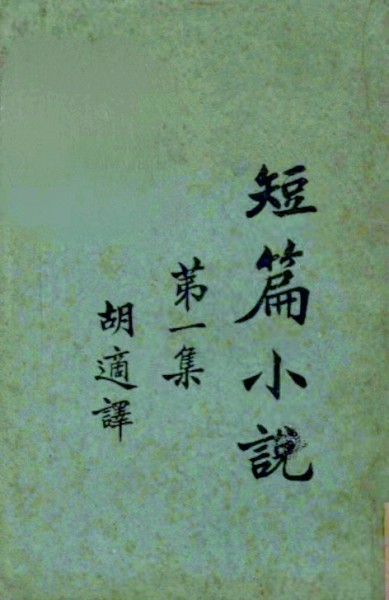 短篇小說
第一集
胡適譯